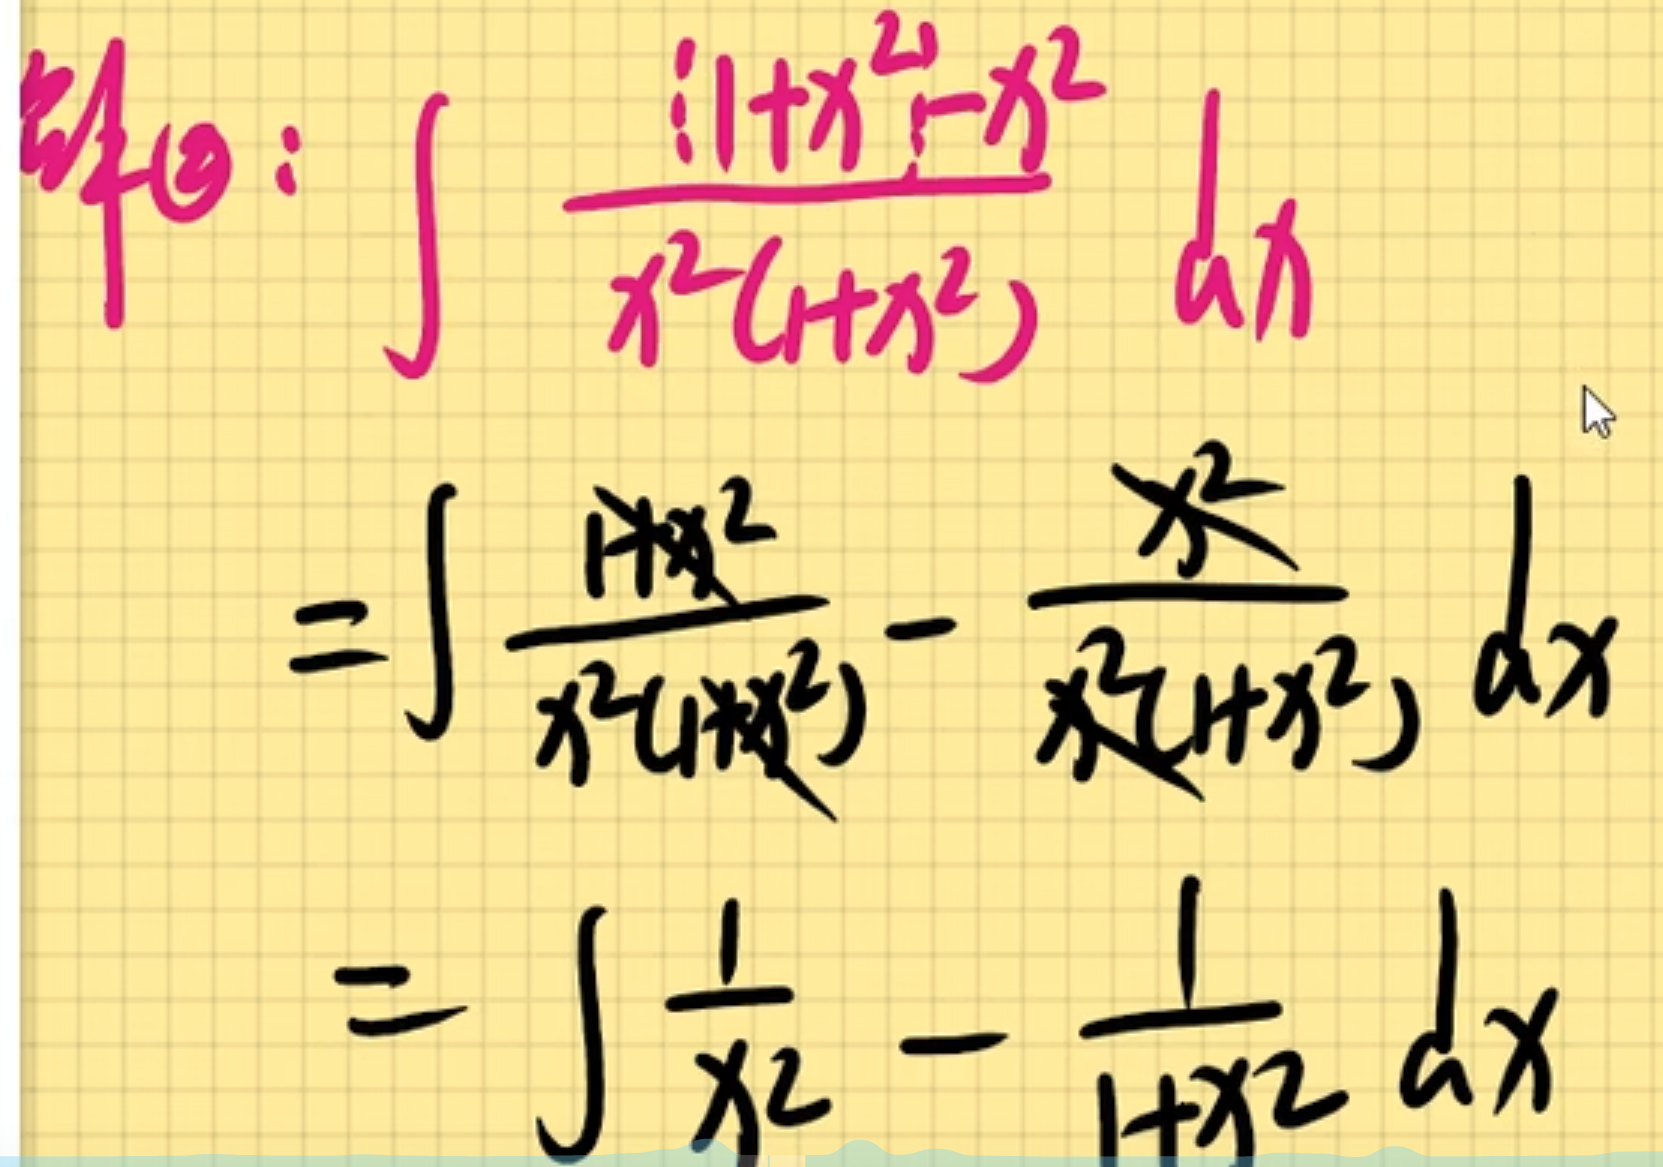 解②: ∫ (1+x²)-x² / x²(1+x²) dx
= ∫ 1+x² / x²(1+x²) - x² / x²(1+x²) dx
= ∫ 1/x² - 1/1+x² dx